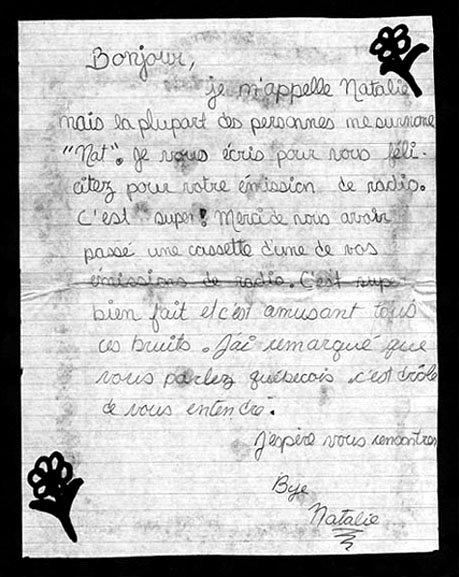 Bonjour,
je m'appelle Natalie
mais la plupart des personnes me surnome
"Nat". Je vous écris pour vous féli-
citez pour votre émission de radio.
C'est super! Merci de nous avoir
passé une cassette d'une de vos
émissions de radio. C'est supe
bien fait et c'est amusant tous
ces bruits. J'ai remarqué que
vous parlez québecois c'est drôle
de vous entendre.
J'espère vous rencontrer
Bye
Natalie